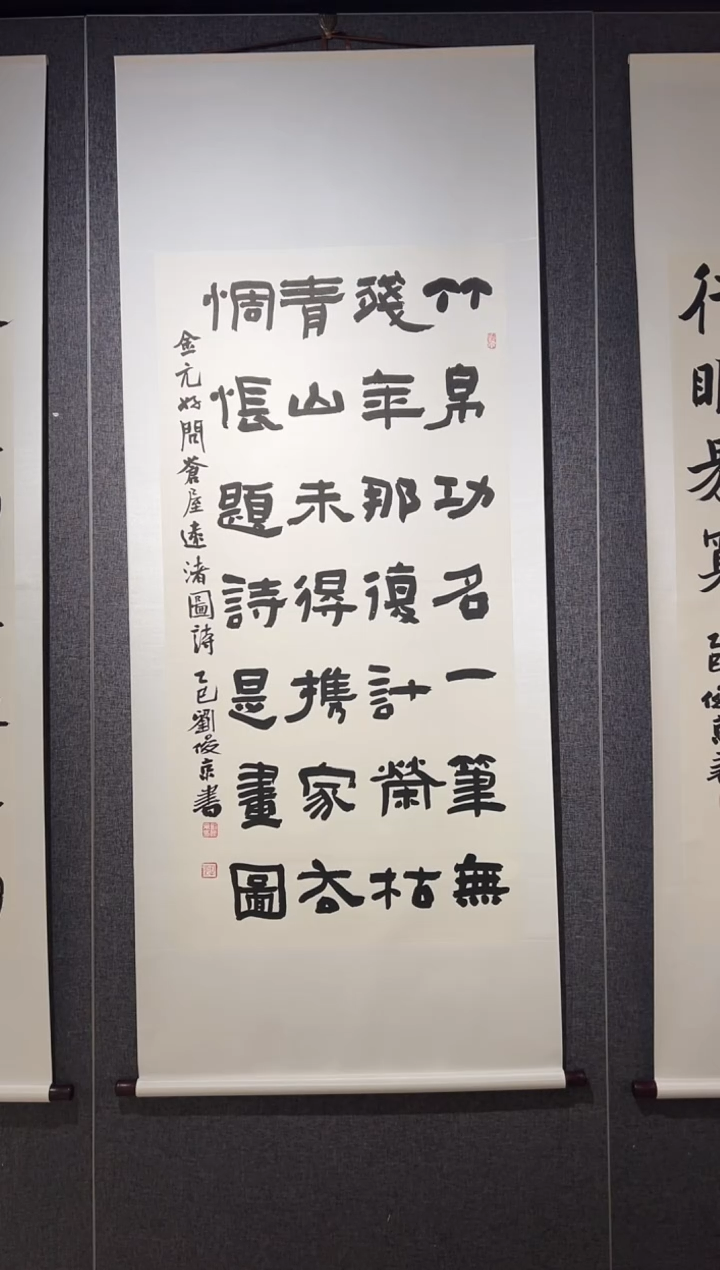 竹帛功名一筆無
殘年那復計榮枯
青山未得携家去
惆悵題詩是畫圖
金元好問蒼屋遠渚圖詩 乙巳劉俊京書
行眼
乙巳俊京書